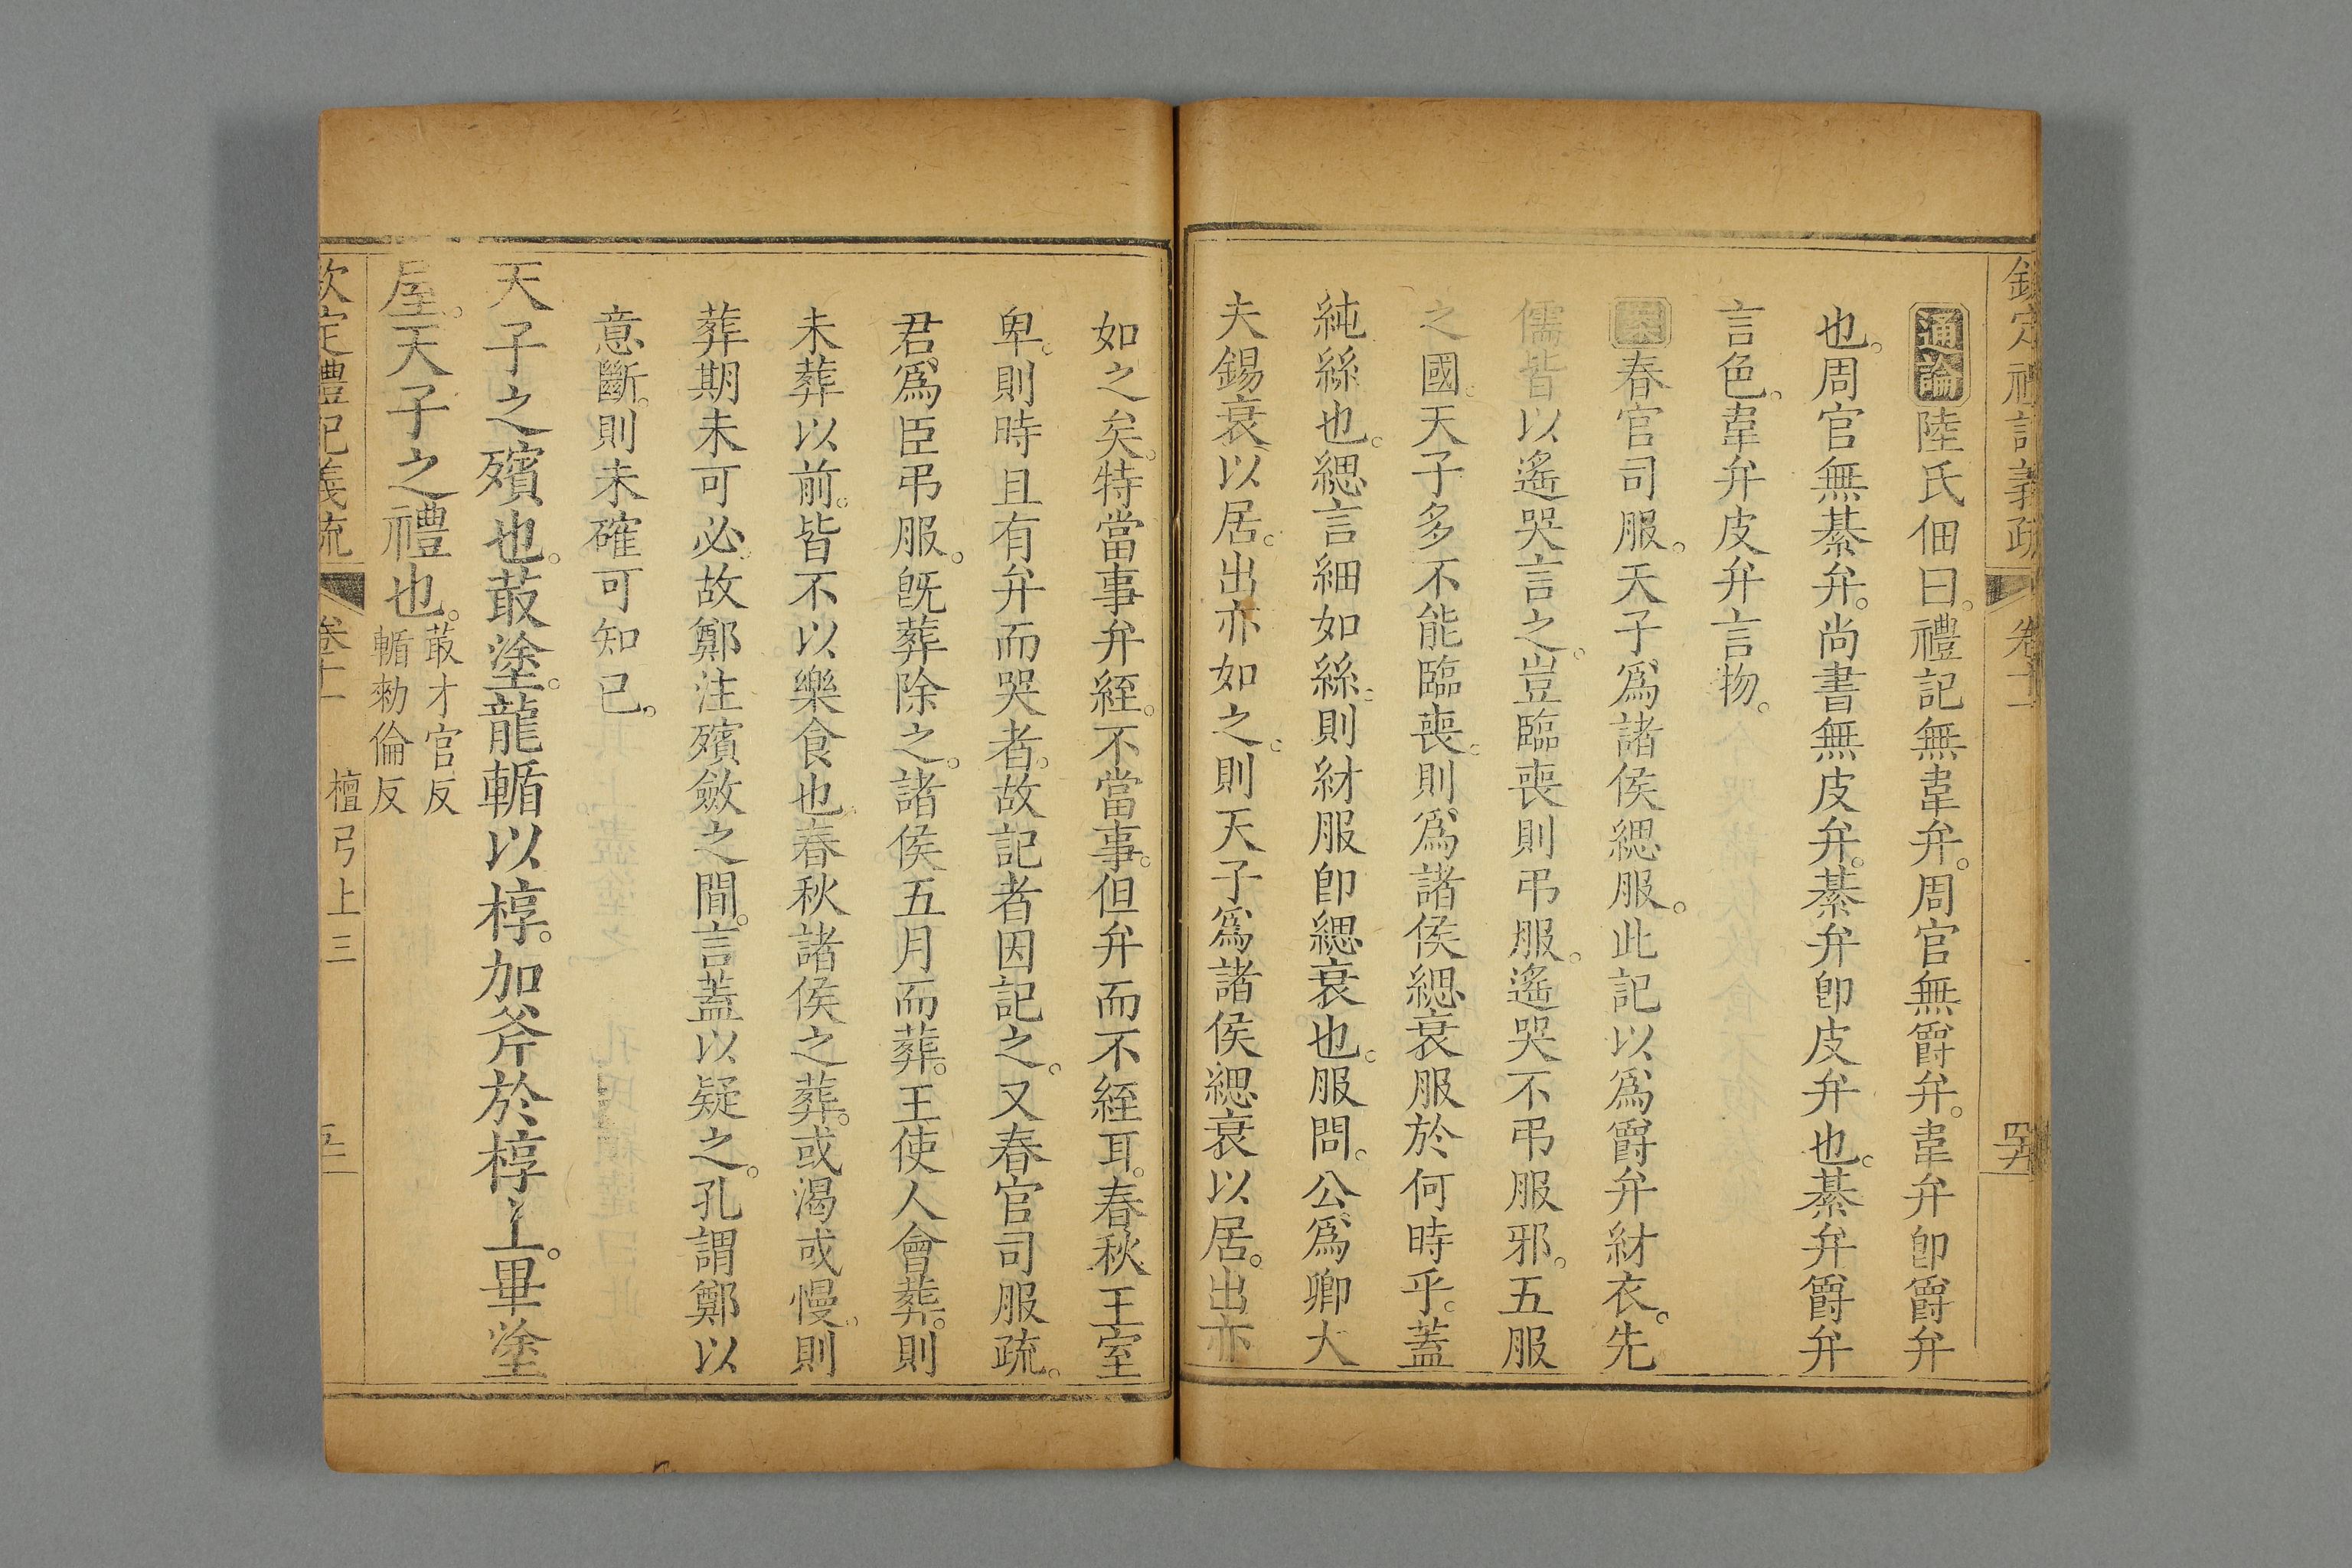 欽定禮記義疏 卷十一 四九
通論陸氏佃曰。禮記無韋弁。周官無爵弁。韋弁卽爵弁
也。周官無綦弁。尚書無皮弁。綦弁卽皮弁也。綦弁爵弁
言色。韋弁皮弁言物。
案春官司服。天子爲諸侯緦服。此記以爲爵弁紂衣。先
儒皆以遙哭言之。豈臨喪則弔服。遙哭不弔服邪。五服
之國。天子多不能臨喪。則爲諸侯緦衰服於何時乎。蓋
純絲也。緦言細如絲。則紂服卽緦衰也。服問。公爲卿大
夫錫衰以居。出亦如之。則天子爲諸侯緦衰以居。出亦
如之矣。特當事弁絰。不當事。但弁而不絰耳。春秋王室
卑。則時且有弁而哭者。故記者因記之。又春官司服疏。
君爲臣弔服。旣葬除之。諸侯五月而葬。王使人會葬。則
未葬以前。皆不以樂食也。春秋諸侯之葬。或渴或慢。則
葬期未可必。故鄭注殯斂之間。言蓋以疑之。孔謂鄭以
意斷。則未確可知已。
天子之殯也。菆塗。龍輴以椁。加斧於椁上。畢塗
屋。天子之禮也。菆才官反
輴勑倫反
欽定禮記義疏 卷十一 檀弓上三 五